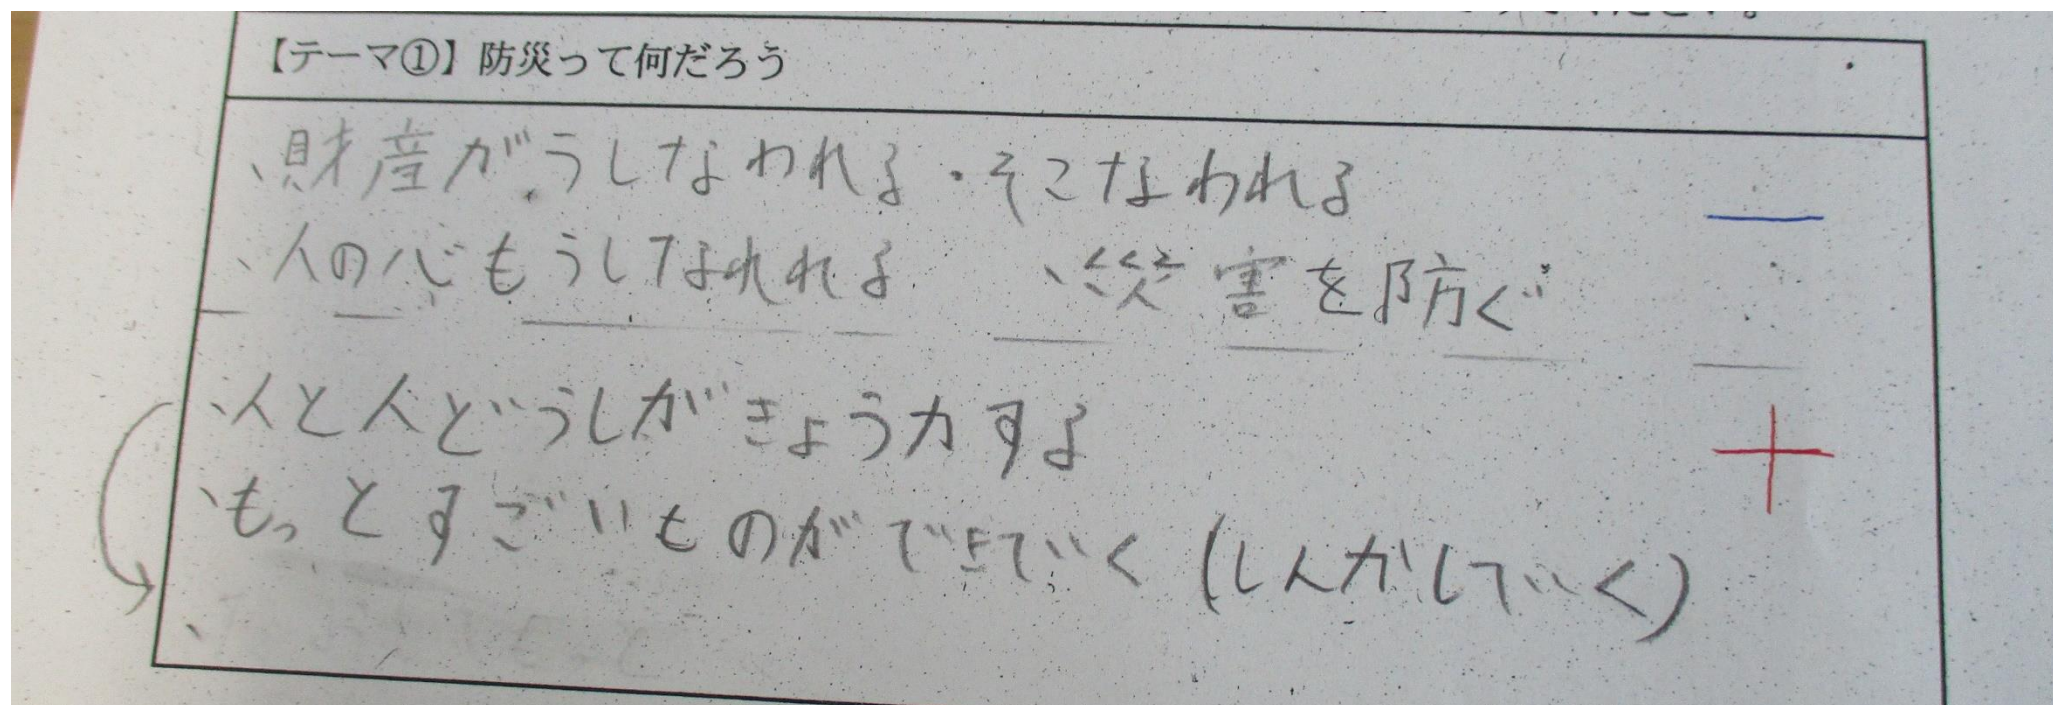 【テーマ①】防災って何だろう
、財産がうしなわれる・そこなわれる
、人の心もうしなれれる 、災害を防ぐ
、人と人どうしがきょう力する
、もっとすごいものができていく(しんかしていく)